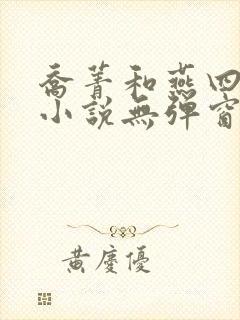 喬菁和燕四
小說無彈窗
黃慶優